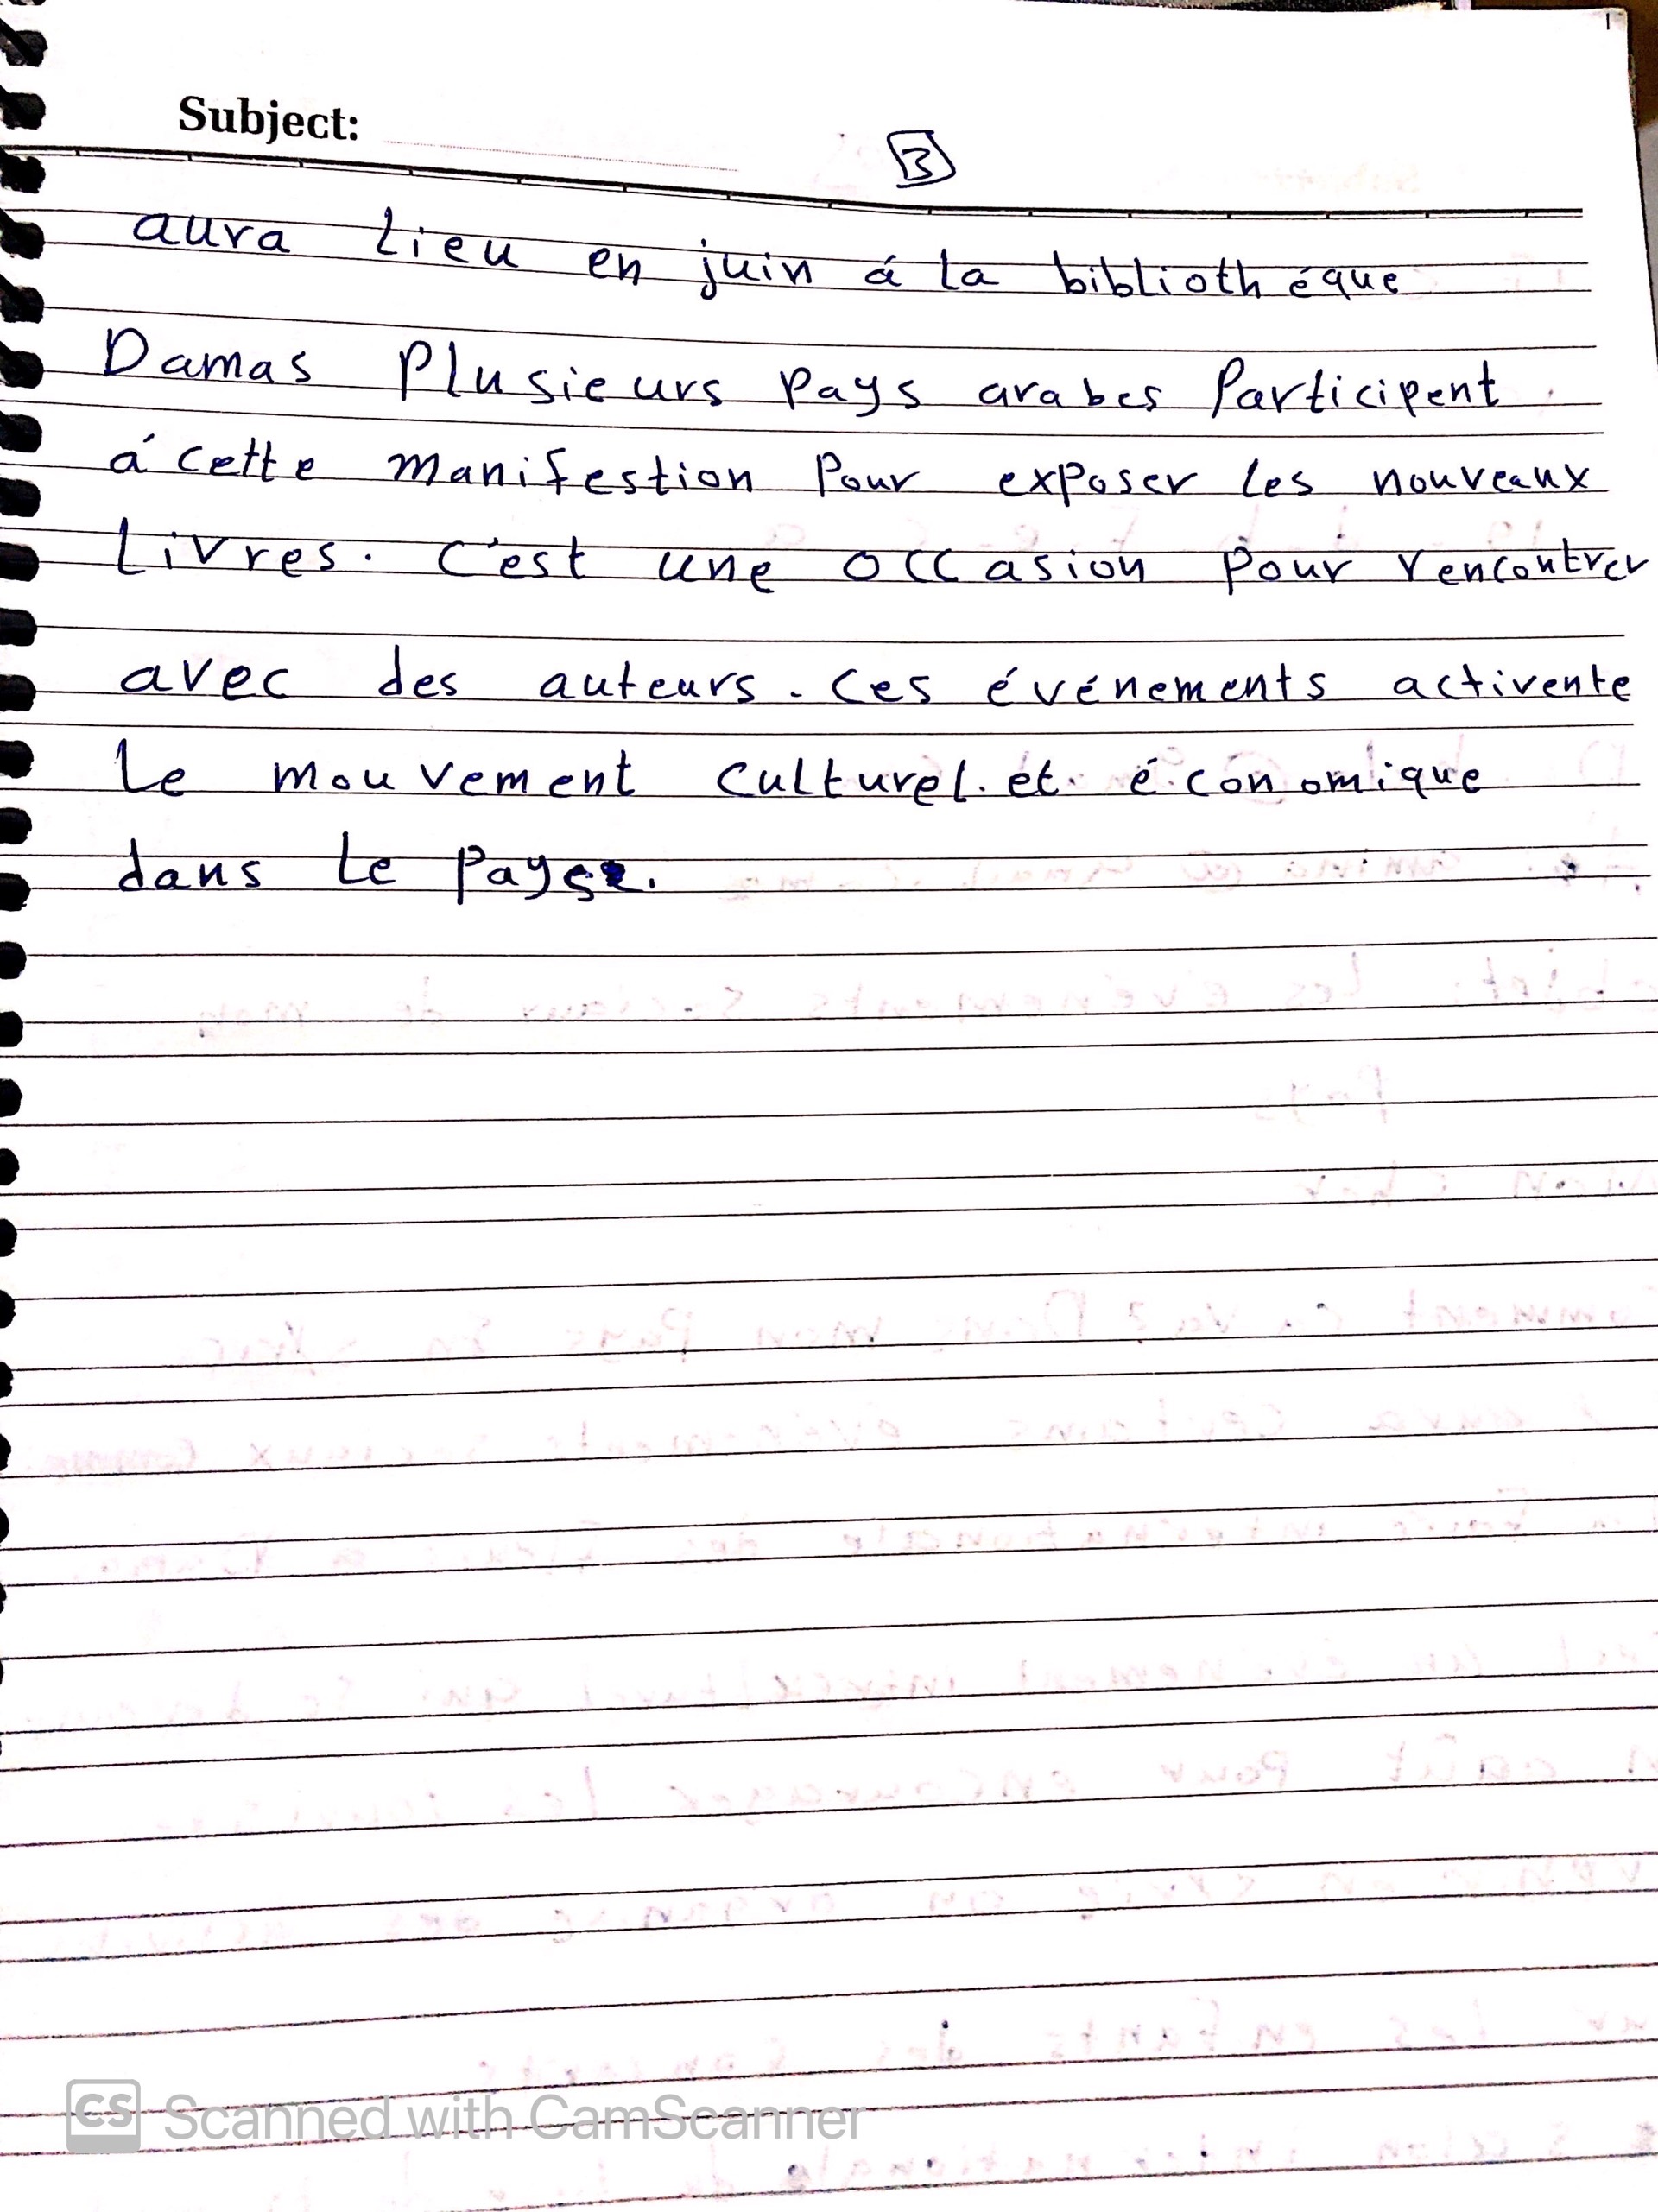 Subject:
3
aura lieu en juin á la bibliothéque
Damas Plusieurs pays arabes Participent
á cette manifestion Pour exposer les nouveaux
Livres. C'est une occasion pour rencontrer
avec des auteurs. Ces événements activente
Le mouvement culturel et économique
dans le pays.
CS Scanned with CamScanner